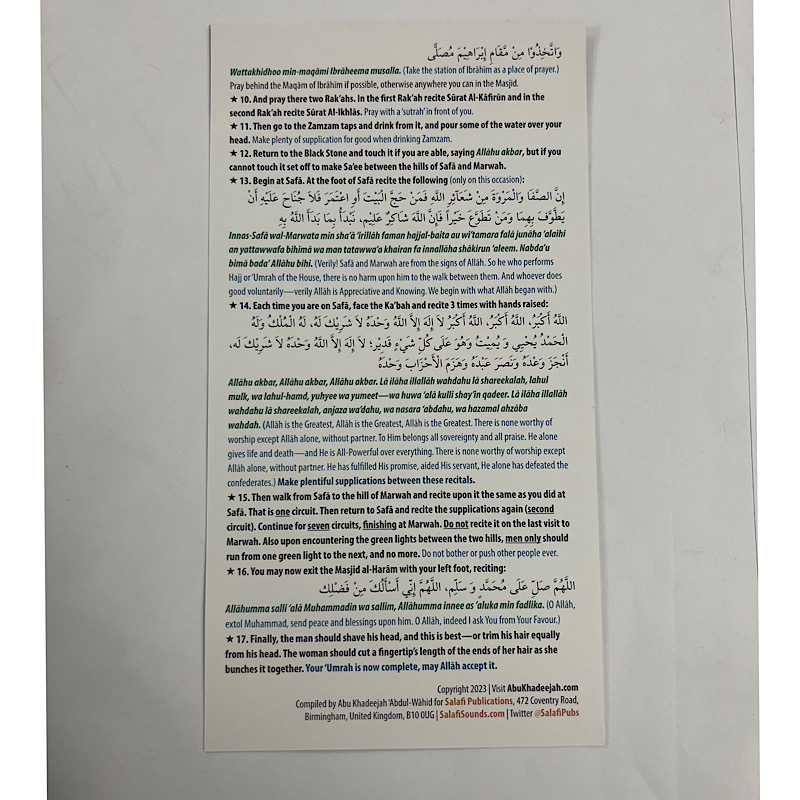 وَاتَّخِذُوْا مِنْ مَّقَامِ إِبْرَاهِيْمَ مُصَلًّى
Wattakhidhoo min-maqāmi Ibrāheema musalla. (Take the station of Ibrāhīm as a place of prayer.)
Pray behind the Maqām of Ibrāhīm if possible, otherwise anywhere you can in the Masjid.
★ 10. And pray there two Rak'ahs. In the first Rak'ah recite Sūrat Al-Kāfirūn and in the
second Rak'ah recite Sūrat Al-Ikhlās. Pray with a 'sutrah' in front of you.
★ 11. Then go to the Zamzam taps and drink from it, and pour some of the water over your
head. Make plenty of supplication for good when drinking Zamzam.
★ 12. Return to the Black Stone and touch it if you are able, saying Allāhu akbar, but if you
cannot touch it set off to make Sa'ee between the hills of Safā and Marwah.
★ 13. Begin at Safā. At the foot of Safā recite the following (only on this occasion):
إِنَّ الصَّفَا وَالْمَرْوَةَ مِنْ شَعَآئِرِ اللَّهِ فَمَنْ حَجَّ الْبَيْتَ أَوِ اعْتَمَرَ فَلاَ جُنَاحَ عَلَيْهِ أَنْ
يَطَّوَّفَ بِهِمَا وَمَنْ تَطَوَّعَ خَيْراً فَإِنَّ اللَّهَ شَاكِرٌ عَلِيْم، نَبْدَأُ بِمَا بَدَأَ اللَّهُ بِهِ
Innas-Safā wal-Marwata min sha'ā 'irillāh faman hajjal-baita au wi'tamara falā junāha 'alaihi
an yattawwafa bihimā wa man tatawwa'a khairan fa innallāha shākirun 'aleem. Nabda'u
bimā bada' Allāhu bihi. (Verily! Safā and Marwah are from the signs of Allāh. So he who performs
Hajj or 'Umrah of the House, there is no harm upon him to the walk between them. And whoever does
good voluntarily—verily Allāh is Appreciative and Knowing. We begin with what Allāh began with.)
★ 14. Each time you are on Safā, face the Ka'bah and recite 3 times with hands raised:
اللَّهُ أَكْبَرُ، اللَّهُ أَكْبَرُ، اللَّهُ أَكْبَرُ لاَ إِلَهَ إِلاَّ اللَّهُ وَحْدَهُ لاَ شَرِيْكَ لَهُ، لَهُ الْمُلْكُ وَلَهُ
الْحَمْدُ يُحْيِي وَ يُمِيْتُ وَهُوَ عَلَى كُلِّ شَيْءٍ قَدِيْر؛ لاَ إِلَهَ إِلاَّ اللَّهُ وَحْدَهُ لاَ شَرِيْكَ لَهُ،
أَنْجَزَ وَعْدَهُ وَنَصَرَ عَبْدَهُ وَهَزَمَ الْأَحْزَابَ وَحْدَهُ
Allāhu akbar, Allāhu akbar, Allāhu akbar. Lā ilāha illallāh wahdahu lā shareekalah, lahul
mulk, wa lahul-hamd, yuhyee wa yumeet—wa huwa 'alā kulli shay'in qadeer. Lā ilāha illallāh
wahdahu lā shareekalah, anjaza wa'dahu, wa nasara 'abdahu, wa hazamal ahzāba
wahdah. (Allāh is the Greatest, Allāh is the Greatest, Allāh is the Greatest. There is none worthy of
worship except Allāh alone, without partner. To Him belongs all sovereignty and all praise. He alone
gives life and death—and He is All-Powerful over everything. There is none worthy of worship except
Allāh alone, without partner. He has fulfilled His promise, aided His servant, He alone has defeated the
confederates.) Make plentiful supplications between these recitals.
★ 15. Then walk from Safā to the hill of Marwah and recite upon it the same as you did at
Safā. That is one circuit. Then return to Safā and recite the supplications again (second
circuit). Continue for seven circuits, finishing at Marwah. Do not recite it on the last visit to
Marwah. Also upon encountering the green lights between the two hills, men only should
run from one green light to the next, and no more. Do not bother or push other people ever.
★ 16. You may now exit the Masjid al-Harām with your left foot, reciting:
اللَّهُمَّ صَلِّ عَلَى مُحَمَّدٍ وَ سَلِّمِ، اللَّهُمَّ إِنِّي أَسْأَلُكَ مِنْ فَضْلِك
Allāhumma salli 'alā Muhammadin wa sallim, Allāhumma innee as 'aluka min fadlika. (O Allāh,
extol Muhammad, send peace and blessings upon him. O Allāh, indeed I ask You from Your Favour.)
★ 17. Finally, the man should shave his head, and this is best—or trim his hair equally
from his head. The woman should cut a fingertip's length of the ends of her hair as she
bunches it together. Your 'Umrah is now complete, may Allāh accept it.
Copyright 2023 | Visit AbuKhadeejah.com
Compiled by Abu Khadeejah 'Abdul-Wāhid for Salafi Publications, 472 Coventry Road,
Birmingham, United Kingdom, B10 0UG | SalafiSounds.com | Twitter @SalafiPubs